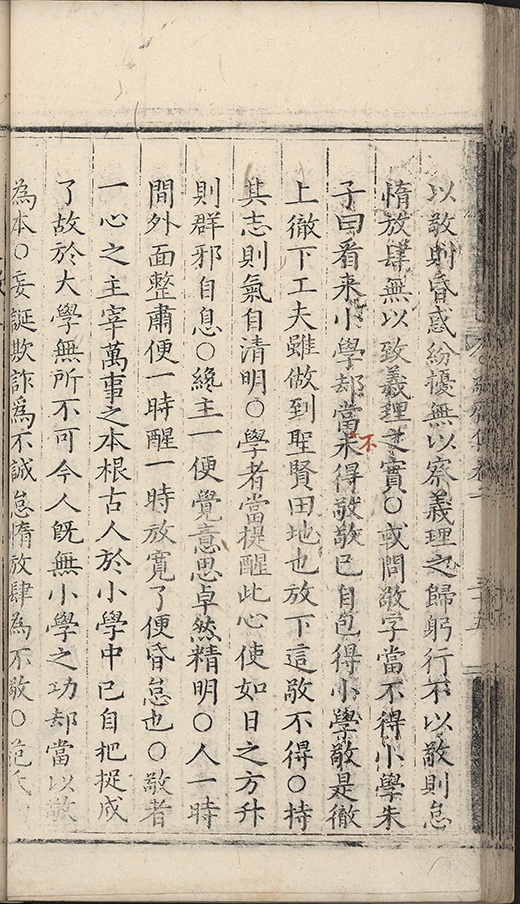 以敬則昏惑紛擾無以察義理之歸躬行不以敬則怠
惰放肆無以致義理之實○或問敬字當不得小學朱
子曰看来小學却當未得敬敬已自包得小學敬是徹
不
上徹下工夫雖做到聖賢田地也放下這敬不得○持
其志則氣自清明○學者當提醒此心使如日之方升
則群邪自息○纔主一便覺意思卓然精明○人一時
間外面整肅便一時醒一時放寛了便昏怠也○敬者
一心之主宰萬事之本根古人於小學中已自把捉成
了故於大學無所不可今人既無小學之功却當以敬
為本○妄誕欺詐為不誠怠惰放肆為不敬○范氏